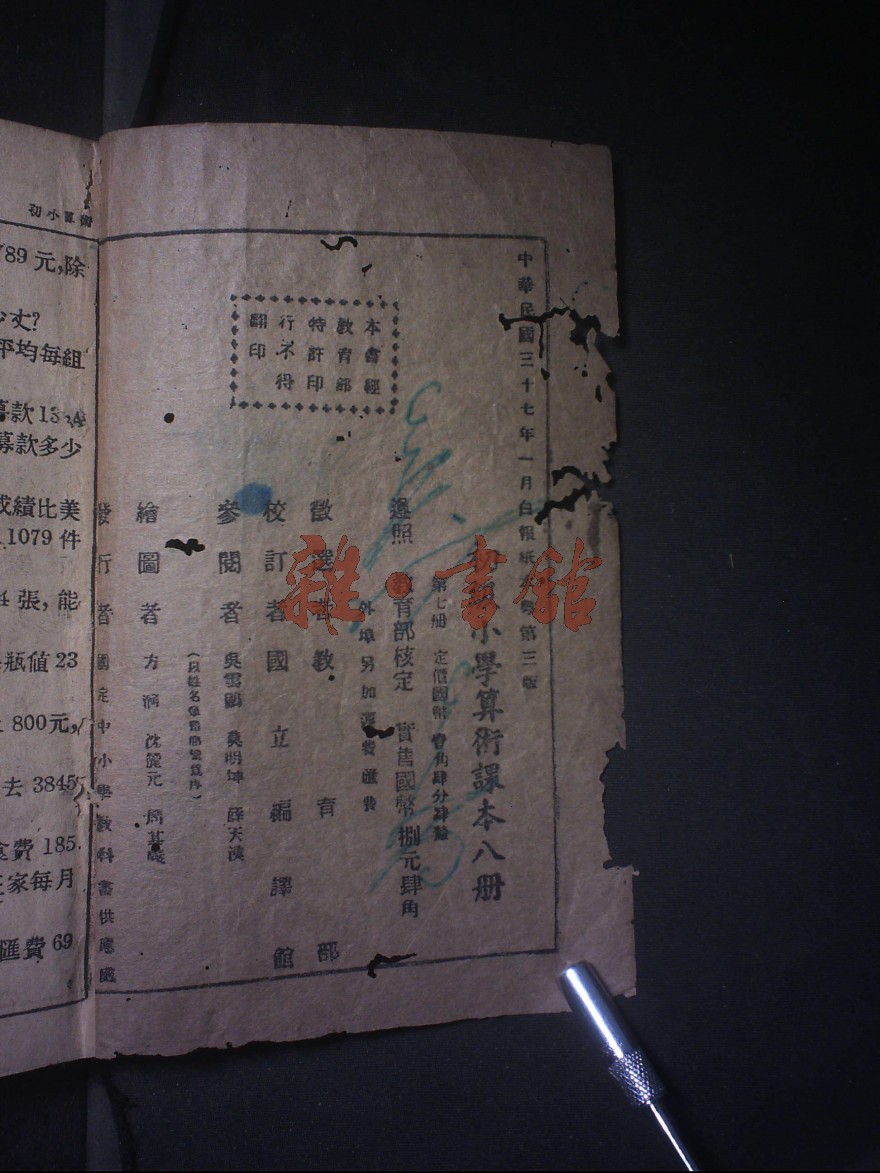 中華民國三十七年一月白報紙本粵第三版
初級小學算術課本八册
第七册 定價國幣 壹角肆分肆釐
遵照 教育部核定 實售國幣 捌元肆角
外埠另加運費匯費
本書經
教育部
特許印
行不得
翻印
徵選者 教育部
校訂者 國立編譯館
參閱者 吳雲鵬 莫明坤 薛天漢
繪圖者 方洞 沈麓元
發行者 國定中小學教科書供應處
雜·書館
初小算術
789 元,除
少丈?
平均每組
募款 13
募款多少
成績比美
1079 件
4 張,能
瓶値 23
800元,
去 3845
食費 185
王家每月
匯費 69